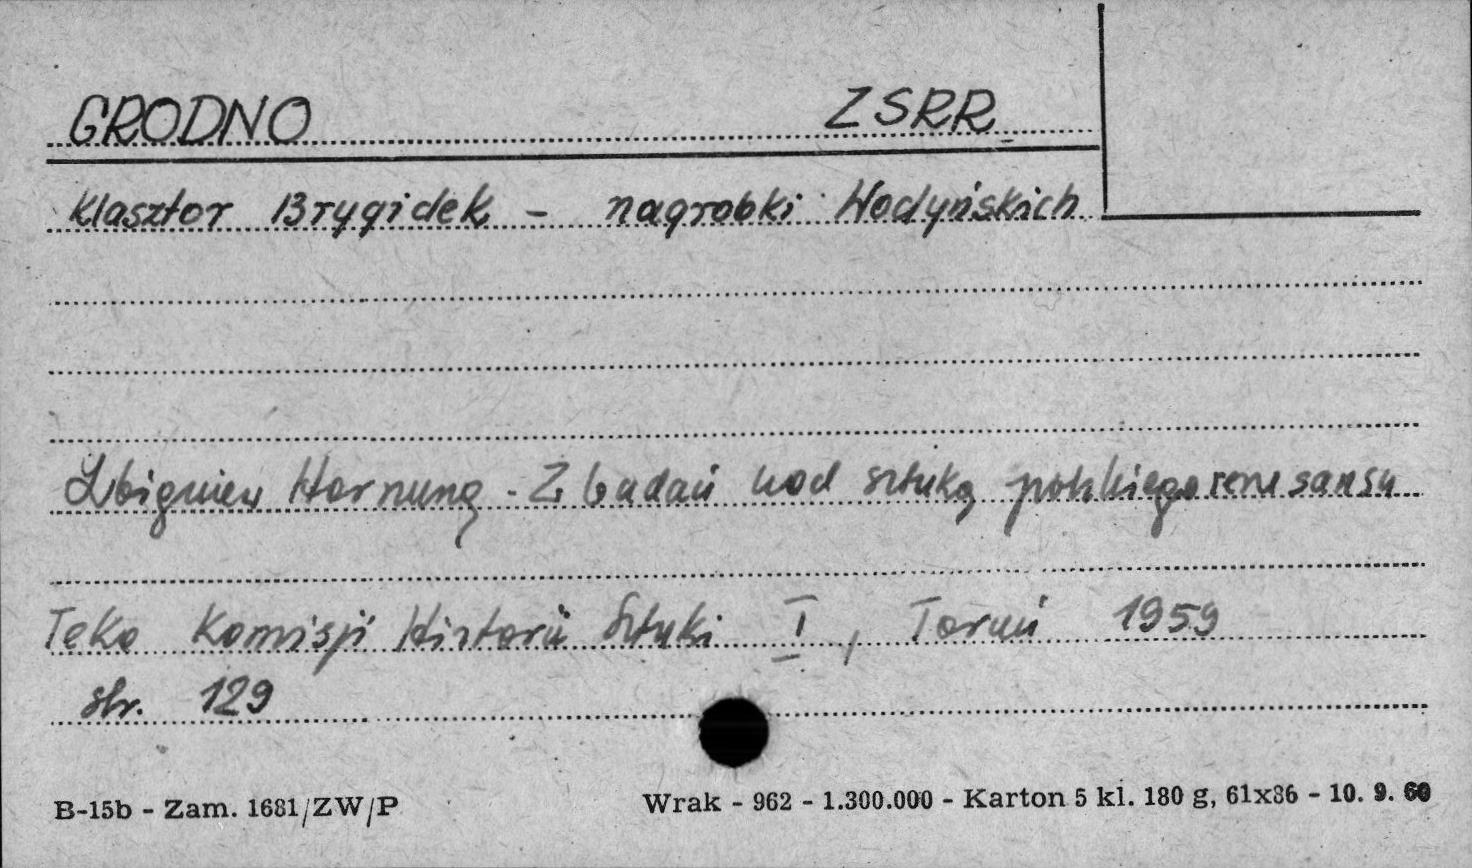 GRODNO ZSRR
Klasztor Brygidek - nagrobki Wodyńskich
Zbigniew Hornung. Z badań nad sztuką polskiego renesansu
Teka Komisji Historii Sztuki I, Toruń 1959
str. 129
B-15b - Zam. 1681/ZW/P Wrak - 962 - 1.300.000 - Karton 5 kl. 180 g, 61x86 - 10. 9. 60